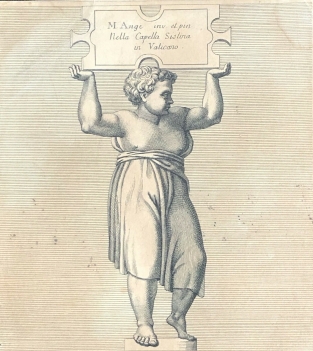 M. Ang. inv. et pin.
Nella Capella Sistina
in Vaticano